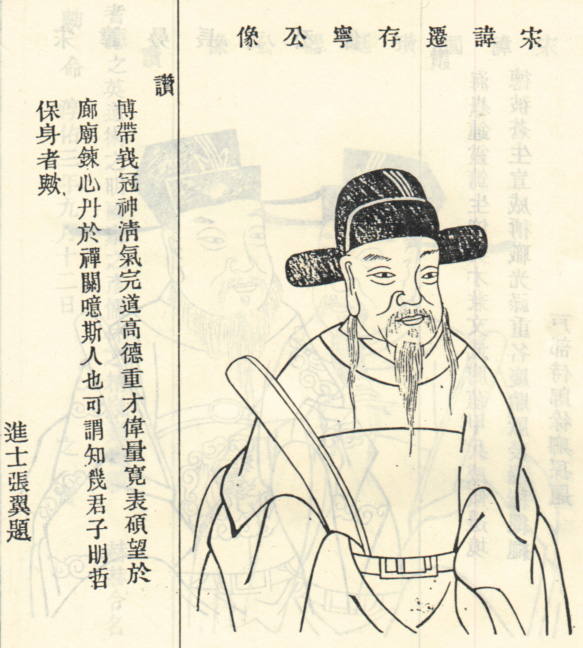 宋諱遷存寧公像
讚
博帶峩冠神清氣完道高德重才偉量寬表碩望於
廊廟鍊心丹於禪關噫斯人也可謂知幾君子明哲
保身者歟
進士張翼題